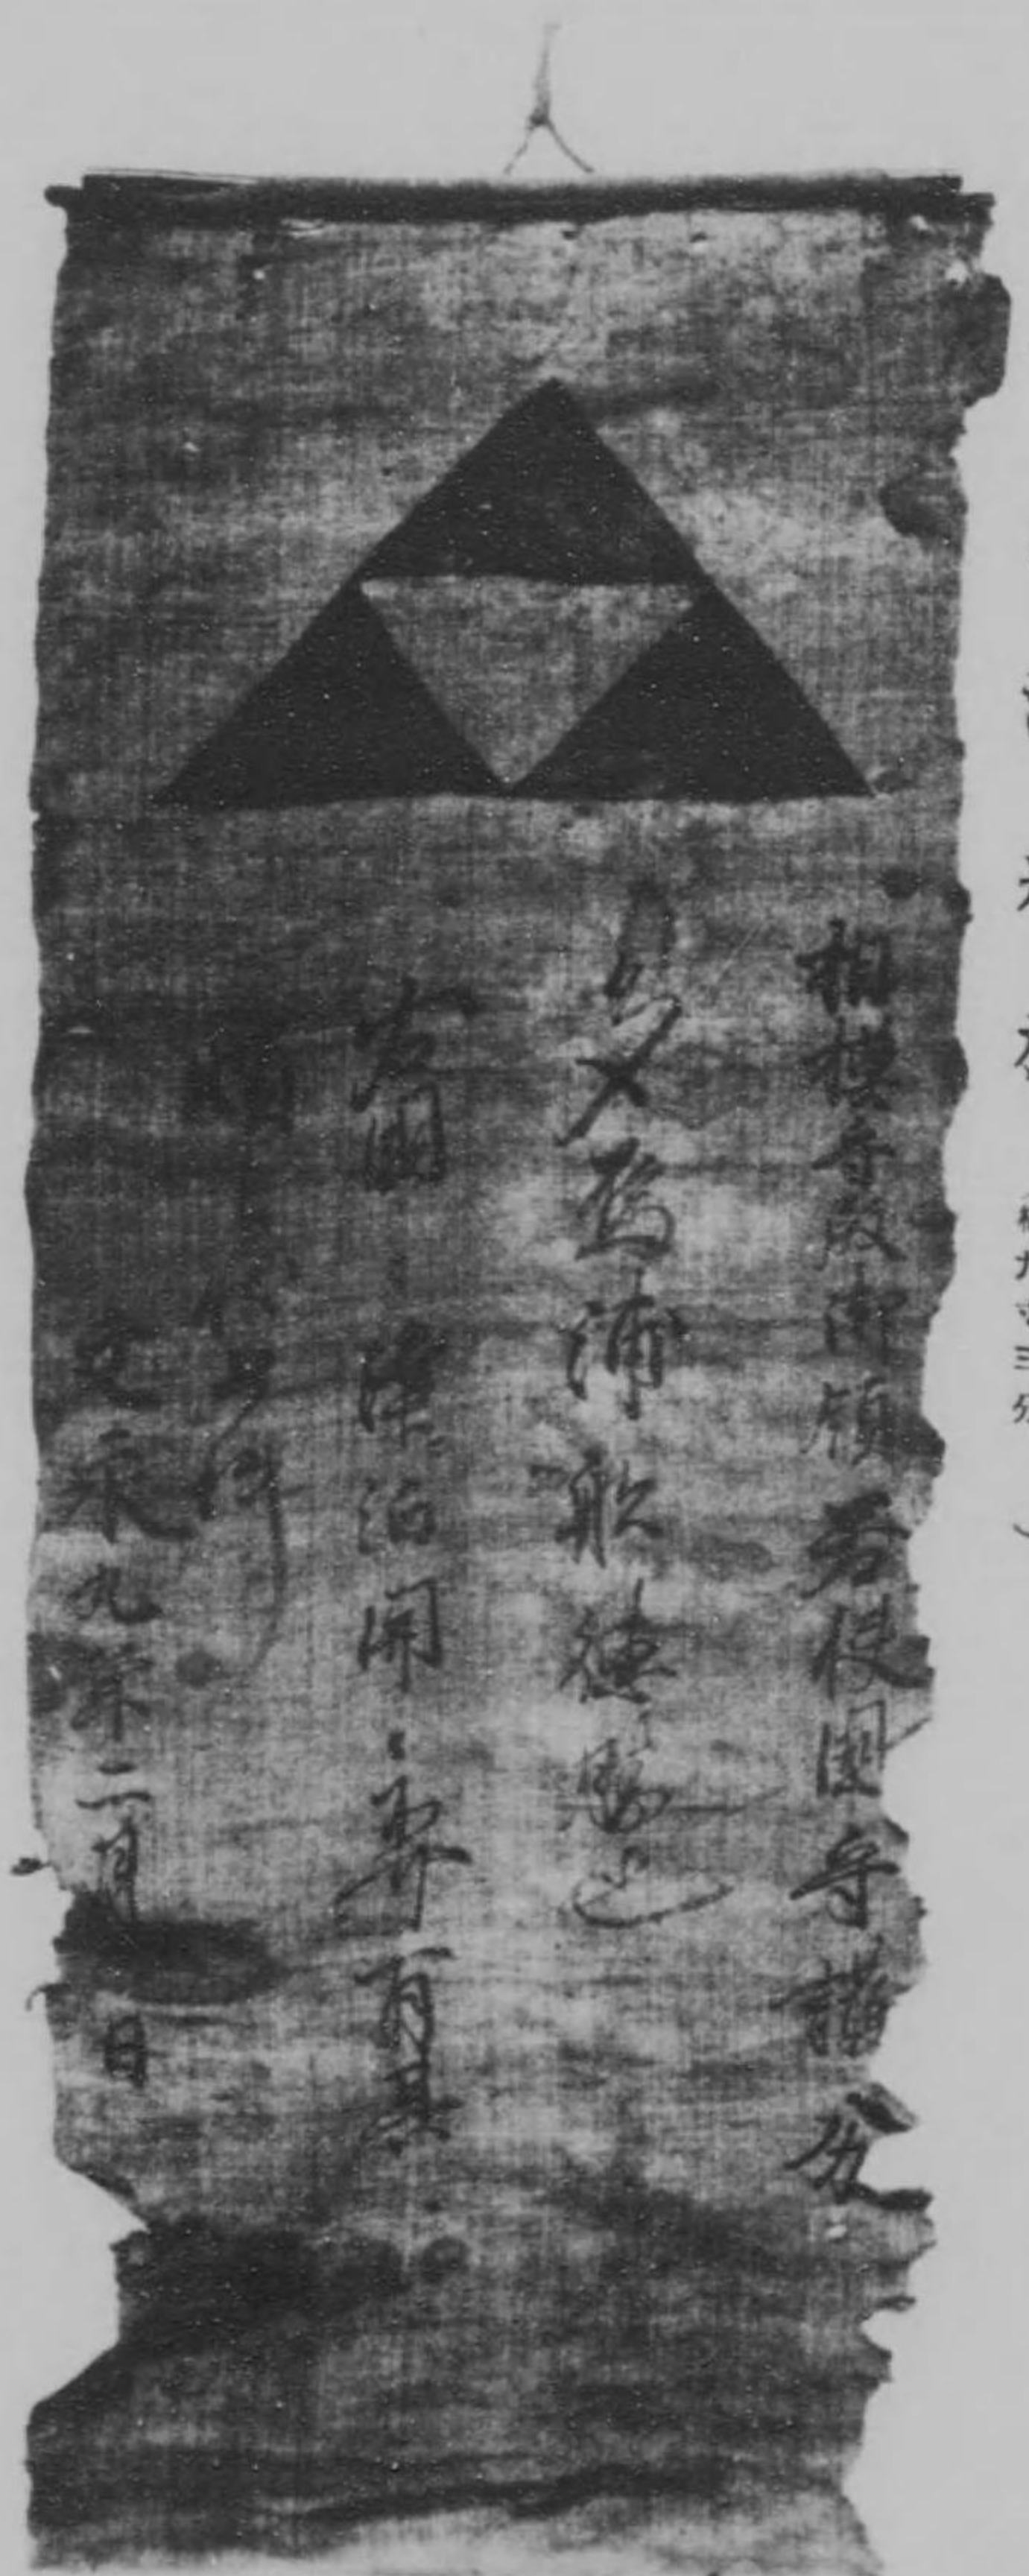 相模守殿御領 若狭国守護分
多烏浦船徳勝也
右国々津泊関々不可有其
如件
文永九年二月 日